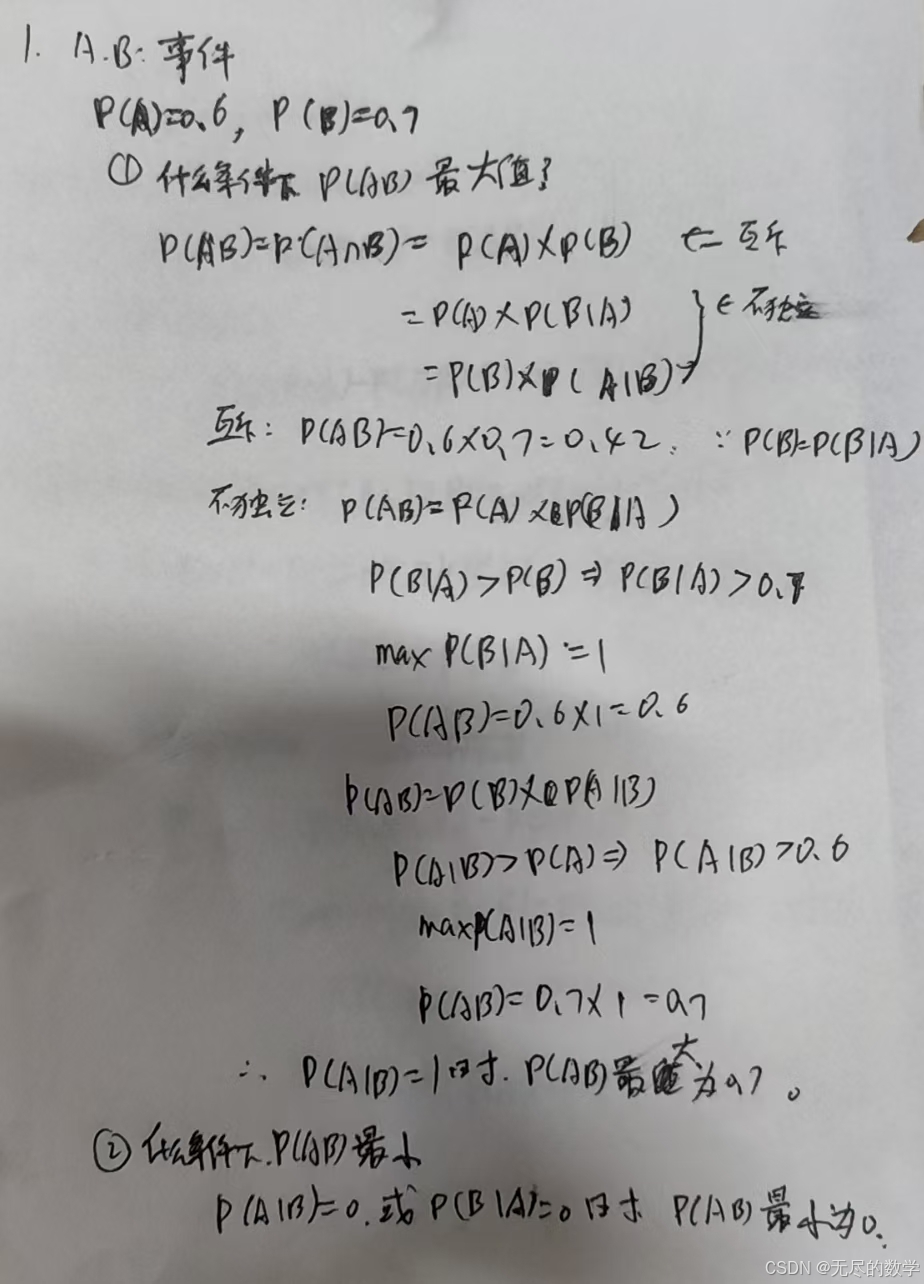 1. A.B: 事件
P(A)=0.6, P(B)=0.7
① 什么条件下 P(AB) 最大值?
P(AB)=P(A∩B)= P(A)×P(B) ⇐ 互斥
=P(A)×P(B|A) } ⇐ 不独立
=P(B)×P(A|B)
互斥: P(AB)=0.6×0.7=0.42. ∵ P(B)=P(B|A)
不独立: P(AB)=P(A)×P(B|A)
P(B|A)>P(B)⇒P(B|A)>0.7
max P(B|A)=1
P(AB)=0.6×1=0.6
P(AB)=P(B)×P(A|B)
P(A|B)>P(A)⇒ P(A|B)>0.6
maxP(A|B)=1
P(AB)=0.7×1=0.7
∴ P(A|B)=1时. P(AB)最大为0.7。
② 什么条件下.P(AB)最小
P(A|B)=0.或 P(B|A)=0时 P(AB)最小为0.
CSDN @无尽的数学